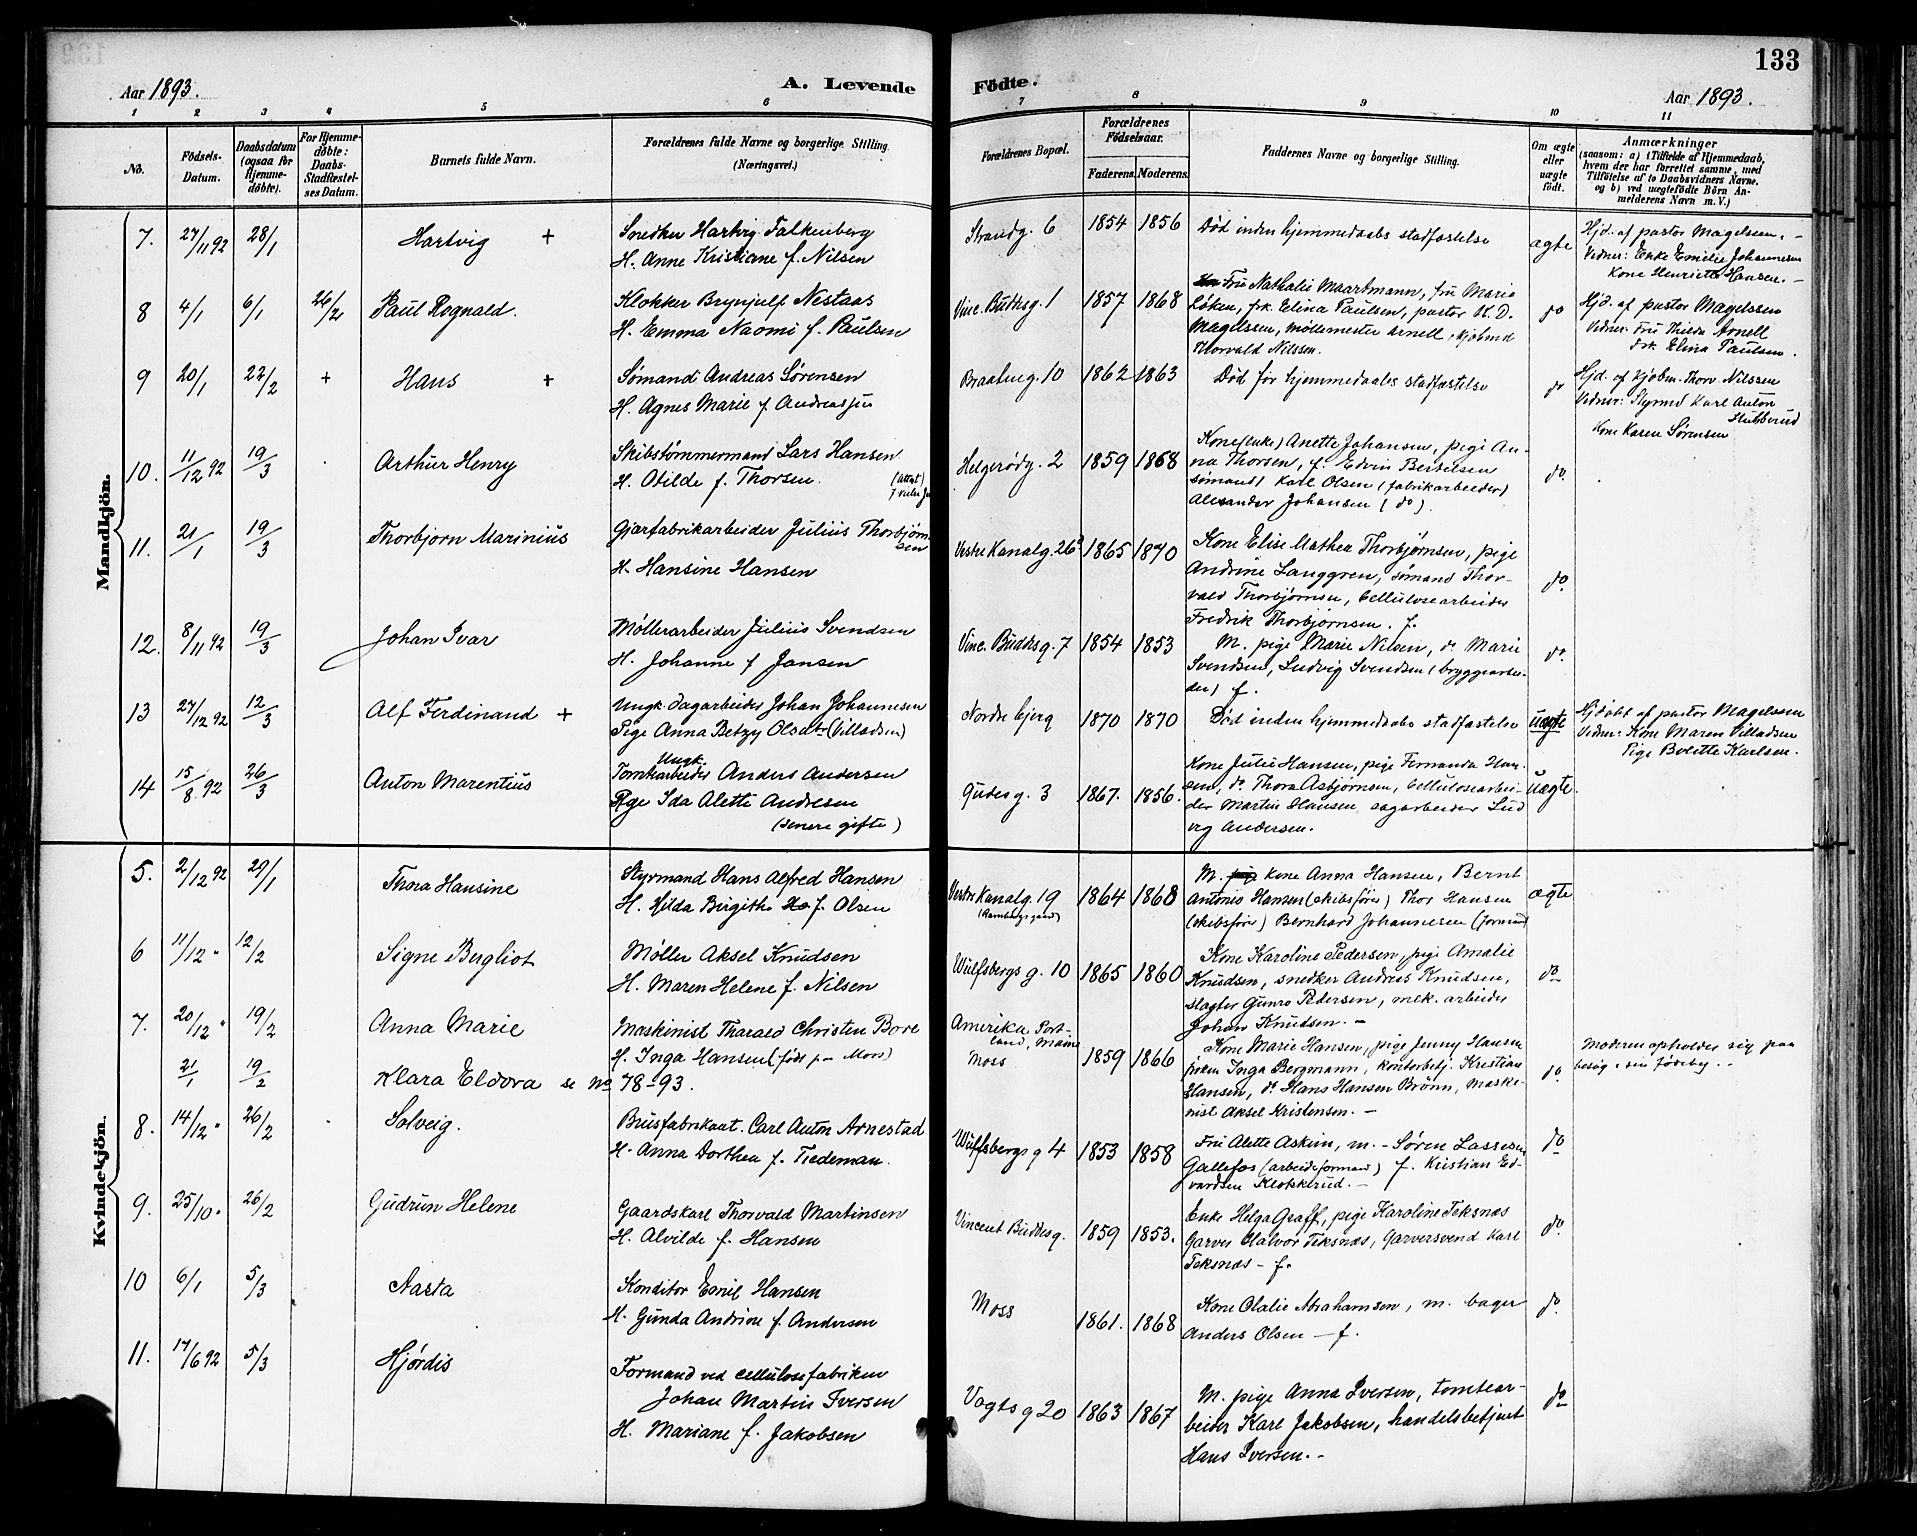 133
Aar 1893.
A. Levende Födte.
Aar 1893.
1 2 3 4 5 6 7 8 9 10 11
No.
Födsels-Datum.
Daabsdatum (ogsaa for Hjemme-døbte).
For Hjemme-døbte: Daabs-Stadfæstelses Datum.
Barnets fulde Navn.
Forældrenes fulde Navne og borgerlige Stilling. (Næringsvei.)
Forældrenes Bopæl.
Forældrenes Födselsaar.
Faderens. Moderens.
Faddernes Navne og borgerlige Stilling.
Om ægte eller uægte født.
Anmærkninger
(saasom: a) i Tilfælde af Hjemmedaab, hvem der har forrettet samme, med Tilføielse af to Daabsvidners Navne. og b) ved uægtefødte Börn Anmelderens Navn m. V.)
Mandkjön.
7. 27/11 92 28/1 Hartvig +
Snedker Hartvig Falkenberg
H. Anne Kristiane f. Nilsen
Strandg. 6 1854 1856
Død inden hjemmedaabs stadfæstelse
ægte
Hjd. af pastor Magelssen. -
Vidner: Enke Emilie Johannesen
Kone Henriette Hansen. -
8 4/1 6/1 26/2 Paul Rognald.
Klokker Brynjulf Nestaas
H. Emma Naomi f. Paulsen
Vinc. Buddsg. 1 1857 1868
Fru Nathalie Maartmann, fru Marie
Løken, frk. Elina Paulsen, pastor H. D.
Magelssen, møllemester Arnell, kjøbmd
Thorvald Nilssen.
do
Hjd. af pastor Magelssen
Vidner: Fru Thilda Arnell
Frk. Elina Paulsen.
9 20/1 22/2 + Hans +
Sømand Andreas Sørensen
H. Agnes Marie f. Andreassen
Braateng. 10 1862 1863
Død før hjemmedaabs stadfæstelse
do
Hjd. af kjøbm. Thorv. Nilssen
Vidner: Styrmd Karl Anton
Stubberud
Kone Karen Sørensen
10. 11/12 92 19/3 Arthur Henry
Skibstømmermand Lars Hansen
H. Otilde f. Thorsen.
Helgerødg. 2 1859 1868
Kone (enke) Anette Johansen, pige An-
na Thorsen, f. Edvin Bertelsen
sømand) Karl Olsen (fabrikarbeider)
Alexander Johansen (do).
do.
11. 21/1 19/3 Thorbjorn Marinius
Gjærfabrikarbeider Julius Thorbjørn-
sen
H. Hansine Hansen
Vestre Kanalg. 26 1865 1870
Kone Elise Mathea Thorbjørnsen, pige
Andrine Langgren, sømand Thor-
vald Thorbjørnsen, Cellulosearbeider
Fredrik Thorbjørnsen. f.
do.
12. 8/11 92 19/3 Johan Ivar
Møllerarbeider Julius Svendsen
H. Johanne f Jansen
Vinc. Buddsg. 7 1854 1853
M. pige Marie Nilsen, do Marie
Svendsen, Ludvig Svendsen (bryggearbei-
der) f.
do.
13 27/12 92 12/3 Alf Ferdinand +
Ungk. dagarbeider Johan Johannesen
Pige Anna Betzy Olsdtr (Villadsen)
Nordre bjerg 1870 1870
Død inden hjemmedaabs stadfæstelse
uægte
Hjdøbt af pastor Magelssen
Vidner: Kone Maren Villadsen
Pige Bolette Karlsen.
14 15/8 92 26/3 Anton Marentius
Ungk.
Tomtearbeider Anders Andersen
Pige Ida Alette Andresen
(senere gifte)
Gudesg. 3 1867. 1856.
Kone Julie Hansen, pige Fernanda Han-
sen, do Thora Asbjørnsen, Cellulosearbei-
der Martin Hansen, sagarbeider Lud-
vig Andersen.
uægte.
Kvindekjön.
5. 2/12 92 29/1 Thora Hansine
Styrmand Hans Alfred Hansen
H. Hilda Birgithe f. Olsen
Vestre Kanalg. 19 1864 1868
(Rambergs gaard)
M. kone Anna Hansen, Bernt
Antonio Hansen (skibsfører) Thor Hansen
(skibsfører) Bernhard Johannesen (formand
ægte
6 11/12 " 12/2 Signe Bergliot
Møller Aksel Knudsen
H. Maren Helene f. Nilsen
Wulfsbergs g. 10 1865 1860
Kone Karoline Pedersen, pige Amalie
Knudsen, snedker Andreas Knudsen,
slagter Gunro Pedersen, mek. arbeider
Johan Knudsen. -
do
7. 20/12 " 19/2 Anna Marie
Maskinist Tharald Christen Bore
H. Inga Hansen (født paa Moss)
Amerika, Port-
land, Maine
Moss 1859 1866
Kone Marie Hansen, pige Jenny Hansen
frøken Inga Bergmann, kontorbetj. Kristian
Hansen, do Hans Hansen Brønn, maski-
nist Aksel Kristensen. -
do.
Moderen opholder sig paa
besøg i sin fødeby. -
21/1 19/2 Klara Eldora se no 78-93.
8. 14/12 " 26/2 Solveig.
Brusfabrikant. Carl Anton Arnestad
H. Anna Dorthea f. Tiedeman.
Wulfsbergs g 4 1853 1858
Fru Alette Askim, m. - Søren Lassesen
Gallefos (arbeidsformand) f. Kristian Ed-
vardsen Klokkerud. -
do
9. 25/10 " 26/2 Gudrun Helene
Gaardskarl Thorvald Martinsen
H. Alvilde f. Hansen
Vincent Buddesg. 1859 1853.
Enke Helga Graff, pige Karoline Teksnæs
Garver Halvor Teksnæs, Garversvend Karl
Teksnæs - f.
do.
10 6/1 5/3 Aasta
Konditor Emil Hansen
H. Gunda Andrine f. Andersen
Moss 1861. 1868
Kone Olalie Abrahamsen, m. bager
Anders Olsen - f.
do.
11. 17/6 92 5/3 Hjørdis
Formand ved cellulosefabriken
Johan Martin Iversen
H. Mariane f. Jakobsen
Vogts g 20 1863 1867
M. pige Anna Iversen, tomtear-
beider Karl Jakobsen, handelsbetjent
Hans Iversen. -
do